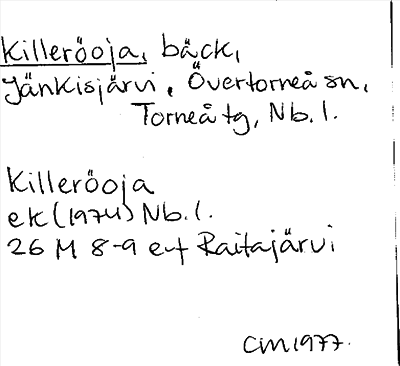 Killeröoja, bäck,
Jänkisjärvi, Övertorneå sn,
Torneå tg, Nb. l.
Killeröoja
ek (1974) Nb. l.
26 M 8-9 e-f Raitajärvi
CM 1977.